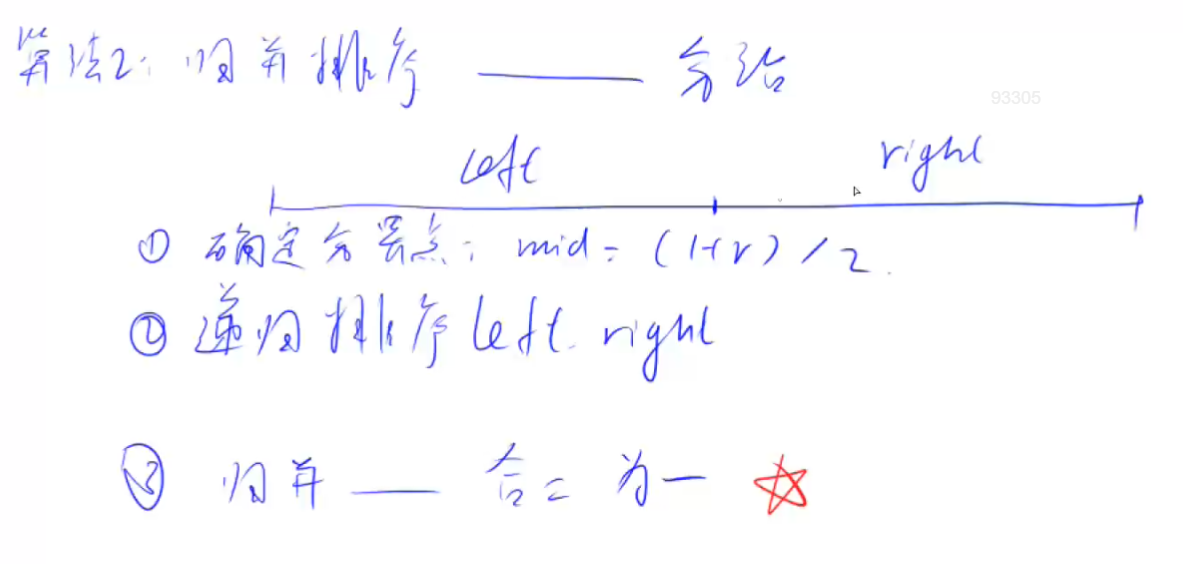 算法2: 归并排序 —— 分治
93305
left right
① 确定分界点: mid = (l+r) / 2.
② 递归排序 left. right
③ 归并 —— 合二为一